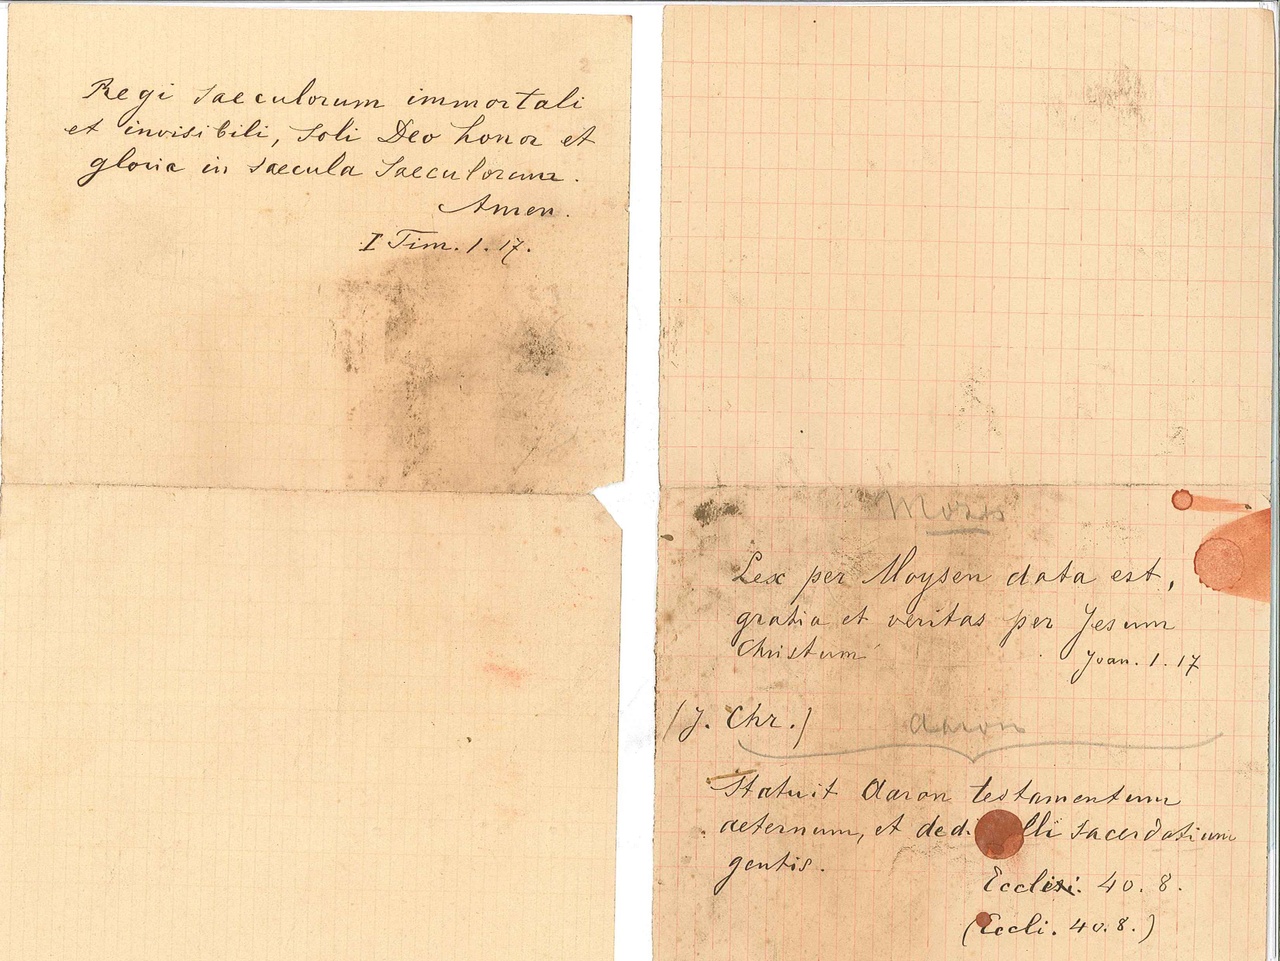 2
Regi saeculorum immortali
et invisibili, soli Deo honor et
gloria in saecula saeculorum.
Amen.
I Tim. 1. 17.
Moses
Lex per Moysen data est,
gratia et veritas per Jesum
Christum
Joan. 1. 17
(J. Chr.)
Aaron
Statuit Aaron testamentum
aeternum, et ded. illi sacerdotium
gentis.
Eccli. 40. 8.
(Eccli. 40. 8.)